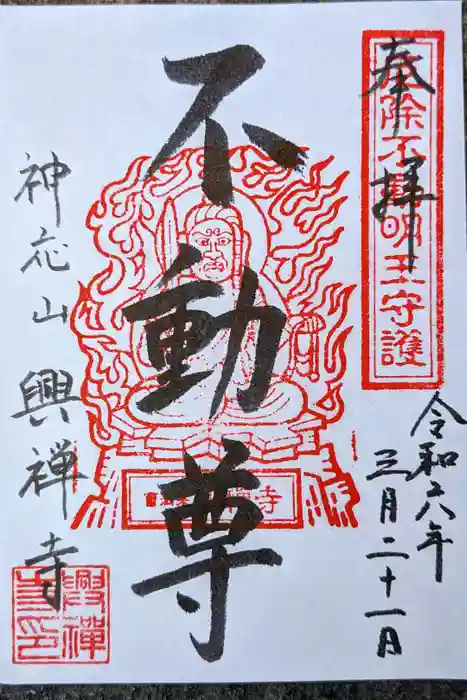 奉拝
厄除不動明王守護
令和六年
三月二十一日
不動尊
神応山興禅寺